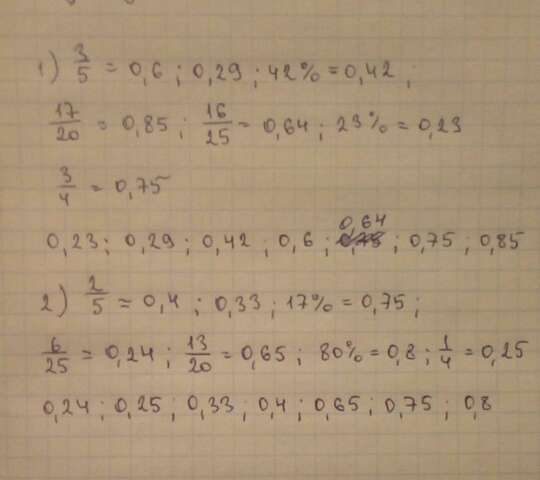 1) 3/5 = 0,6 ; 0,29 ; 42% = 0,42 ;
17/20 = 0,85 ; 16/25 = 0,64 ; 23% = 0,23
3/4 = 0,75
0,23 ; 0,29 ; 0,42 ; 0,6 ; 0,64 ; 0,75 ; 0,85
2) 2/5 = 0,4 ; 0,33 ; 17% = 0,75 ;
6/25 = 0,24 ; 13/20 = 0,65 ; 80% = 0,8 ; 1/4 = 0,25
0,24 ; 0,25 ; 0,33 ; 0,4 ; 0,65 ; 0,75 ; 0,8